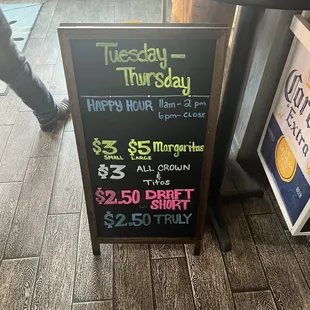 Tuesday -
Thursday
HAPPY HOUR 11am-2pm
6pm-CLOSE
$3 $5 Margaritas
SMALL LARGE
$3 ALL CROWN
&
Titos
$2.50 DRAFT
SHORT
$2.50 TRULY
Corona
Extra